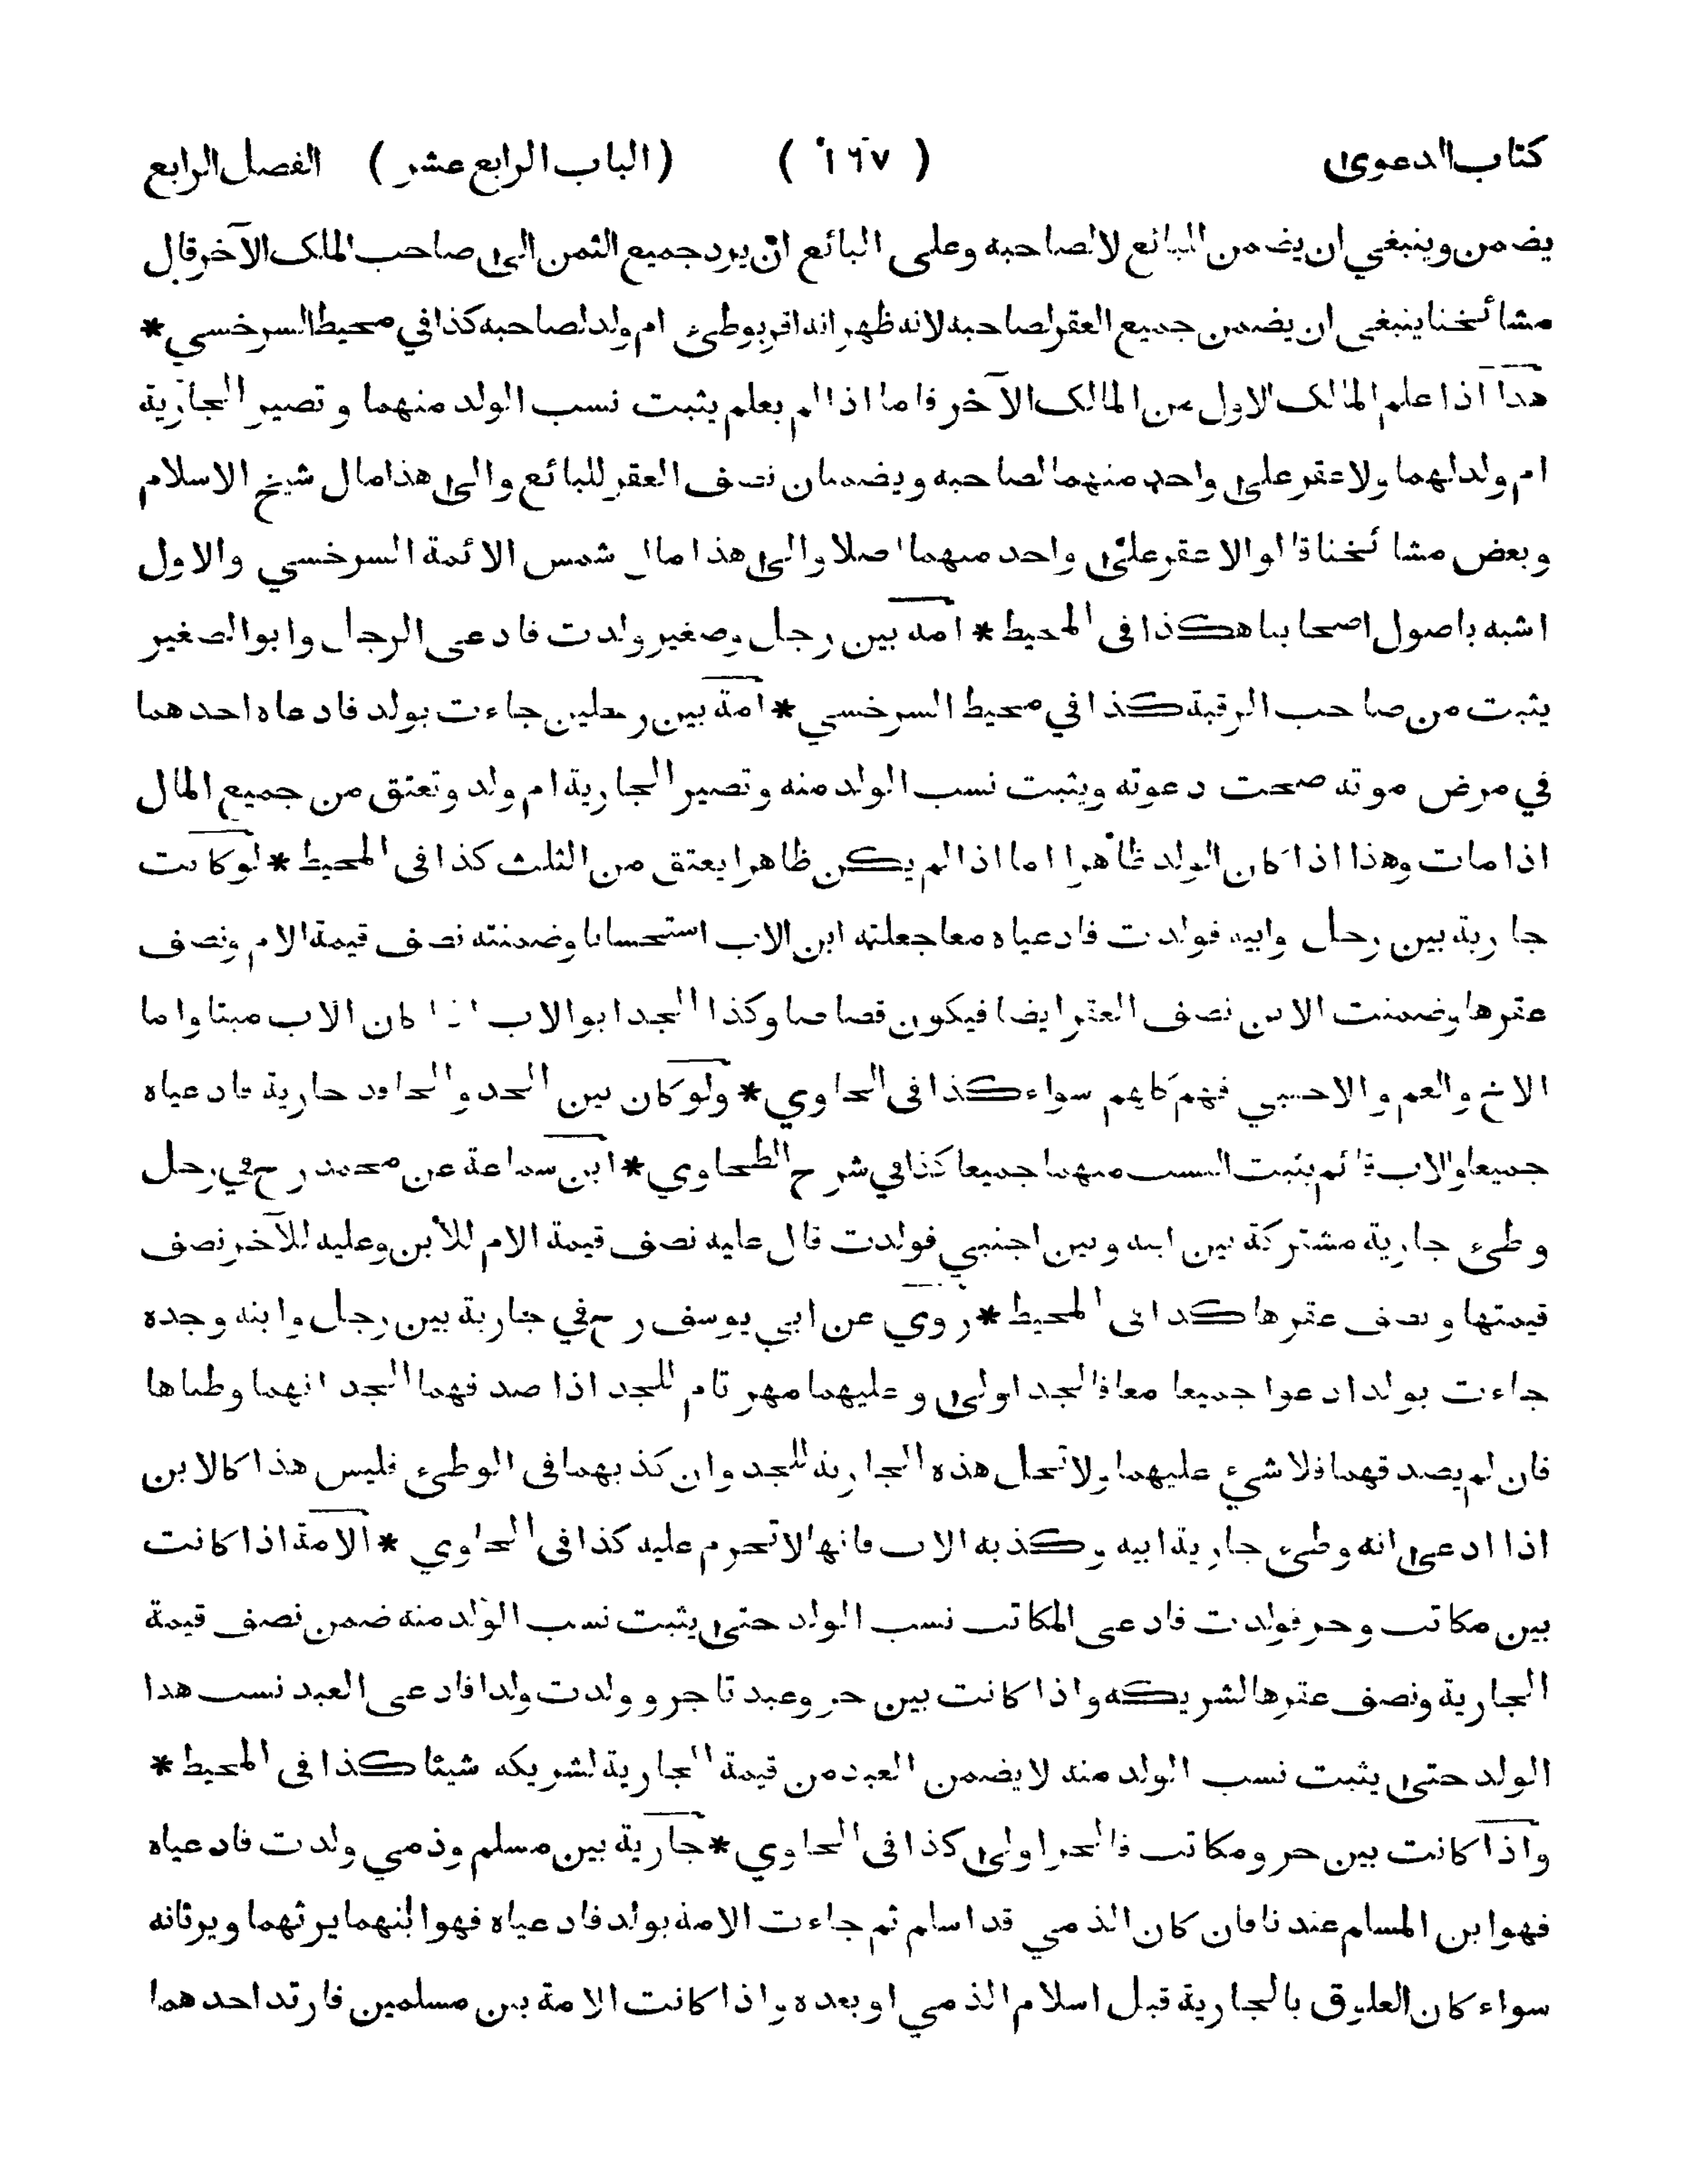 كتاب الدعوى ( ١٦٧ ) ( الباب الرابع عشر ) الفصل الرابع
يضمن وينبغي ان يضمن البائع لا لصاحبه وعلى البائع ان يرد جميع الثمن الى صاحب الملك الآخر قال
مشائخنا ينبغي ان يضمن جميع العقر لصاحبه لانه ظهر انه اقر بوطئ ام ولد لصاحبه كذا في محيط السرخسي *
هذا اذا علم المالك الاول من المالك الآخر فاما اذا لم يعلم يثبت نسب الولد منهما وتصير الجارية
ام ولد لهما ولا عقر على واحد منهما لصاحبه ويضمنان نصف العقر للبائع والى هذا مال شيخ الاسلام
وبعض مشائخنا قالوا لا عقر على واحد منهما اصلا والى هذا مال شمس الائمة السرخسي والاول
اشبه باصول اصحابنا هكذا في المحيط * امة بين رجل وصغير ولدت فادعى الرجل وابو الصغير
يثبت من صاحب الرقبة كذا في محيط السرخسي * امة بين رجلين جاءت بولد فادعاه احدهما
في مرض موته صحت دعوته ويثبت نسب الولد منه وتصير الجارية ام ولد وتعتق من جميع المال
اذا مات وهذا اذا كان الولد ظاهرا اما اذا لم يكن ظاهرا يعتق من الثلث كذا في المحيط * لو كانت
جارية بين رجل وابيه فولدت فادعياه معا جعلته ابن الاب استحسانا وضمنته نصف قيمة الام ونصف
عقرها وضمنت الابن نصف العقر ايضا فيكون قصاصا وكذا الجد ابو الاب اذا كان الاب ميتا واما
الاخ والعم والاجنبي فهم كلهم سواء كذا في الحاوي * ولو كان بين الجد والحافد جارية فادعياه
جميعا والاب قائم يثبت النسب منهما جميعا كذا في شرح الطحاوي * ابن سماعة عن محمد رح في رجل
وطئ جارية مشتركة بين ابنه وبين اجنبي فولدت قال عليه نصف قيمة الام للابن وعليه للآخر نصف
قيمتها ونصف عقرها كذا في المحيط * روي عن ابي يوسف رح في جارية بين رجل وابنه وجده
جاءت بولد ادعوا جميعا معا فالجد اولى وعليهما مهر تام للجد اذا صدقهما الجد انهما وطئاها
فان لم يصدقهما فلا شيء عليهما ولا تحل هذه الجارية للجد وان كذبهما في الوطئ فليس هذا كالابن
اذا ادعى انه وطئ جارية ابيه وكذبه الاب فانها لا تحرم عليه كذا في الحاوي * الامة اذا كانت
بين مكاتب وحر فولدت فادعى المكاتب نسب الولد حتى يثبت نسب الولد منه ضمن نصف قيمة
الجارية ونصف عقرها لشريكه واذا كانت بين حر وعبد تاجر وولدت ولدا فادعى العبد نسب هذا
الولد حتى يثبت نسب الولد منه لا يضمن العبد من قيمة الجارية لشريكه شيئا كذا في المحيط *
واذا كانت بين حر ومكاتب فالحر اولى كذا في الحاوي * جارية بين مسلم وذمي ولدت فادعياه
فهو ابن المسلم عندنا فان كان الذمي قد اسلم ثم جاءت الامة بولد فادعياه فهو ابنهما يرثهما ويرثانه
سواء كان العلوق بالجارية قبل اسلام الذمي او بعده واذا كانت الامة بين مسلمين فارتد احدهما